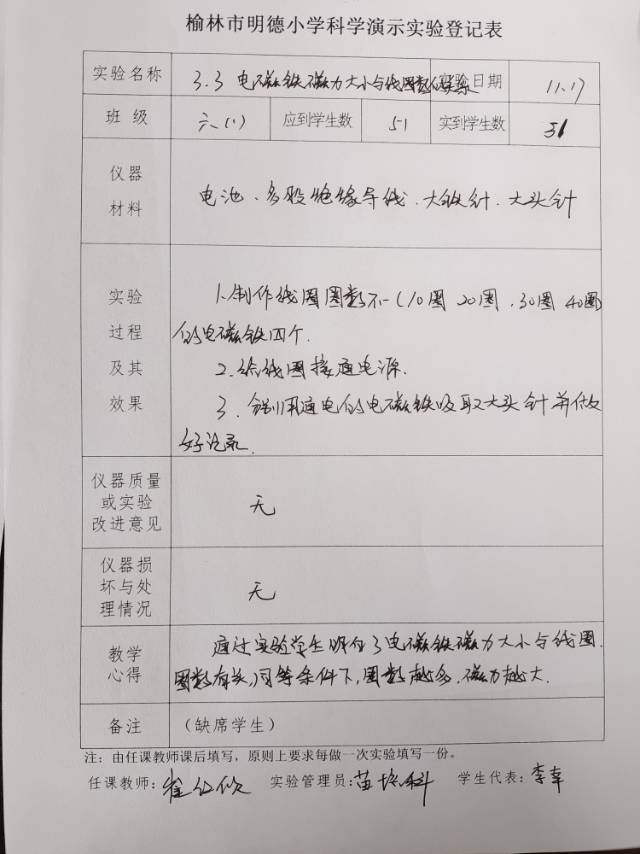 榆林市明德小学科学演示实验登记表
实验名称 3.3 电磁铁磁力大小与线圈数的关系 实验日期 11.17
班 级 六(1) 应到学生数 51 实到学生数 51
仪器
材料
电池、多股绝缘导线、大铁针、大头针
实验
过程
及其
效果
1.制作线圈圈数不一(10圈 20圈、30圈 40圈)
的电磁铁四个.
2.给线圈接通电源.
3.分别用通电的电磁铁吸取大头针并做
好记录.
仪器质量
或实验
改进意见
无
仪器损
坏与处
理情况
无
教学
心得
通过实验学生明白了电磁铁磁力大小与线圈
圈数有关,同等条件下,圈数越多,磁力越大.
备注 (缺席学生)
注:由任课教师课后填写,原则上要求每做一次实验填写一份。
任课教师:崔 实验管理员:苗 科 学生代表:李幸